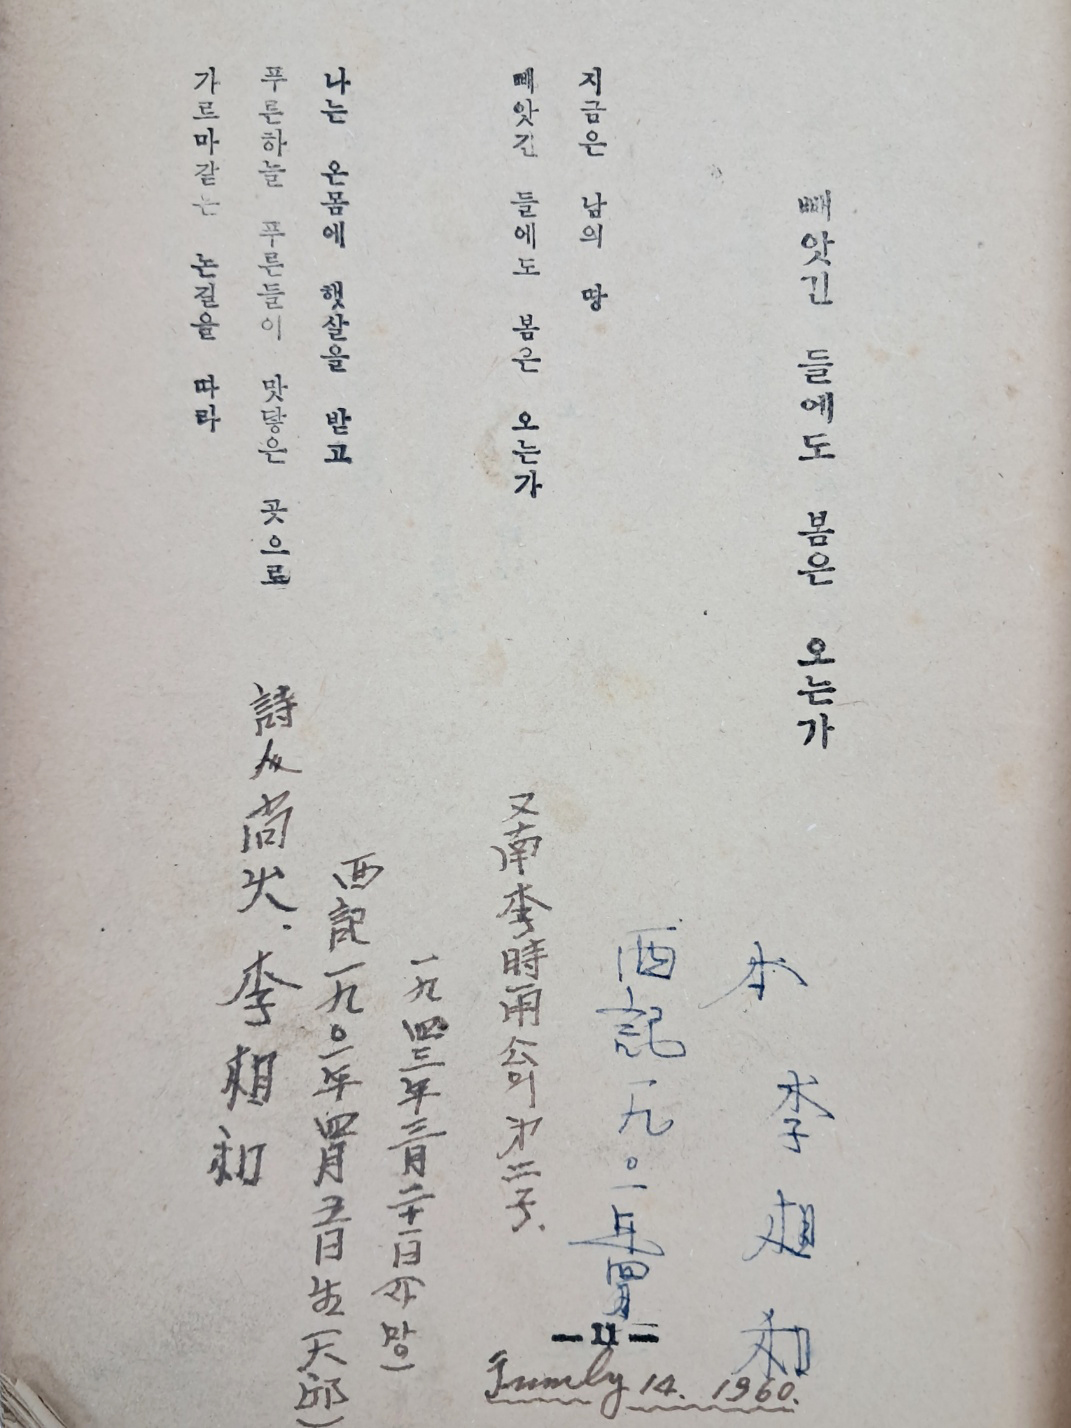 빼앗긴 들에도 봄은 오는가
지금은 남의 땅
빼앗긴 들에도 봄은 오는가
나는 온몸에 햇살을 받고
푸른하늘 푸른들이 맞닿은 곳으로
가르마같은 논길을 따라
本 李相和
西記一九〇一年四月
又南李時雨公의 第二子.
一九四三年三月二十一日사망)
西記一九〇一年四月五日生 大邱)
詩人尙火. 李相和
— 11 —
14. 1960.